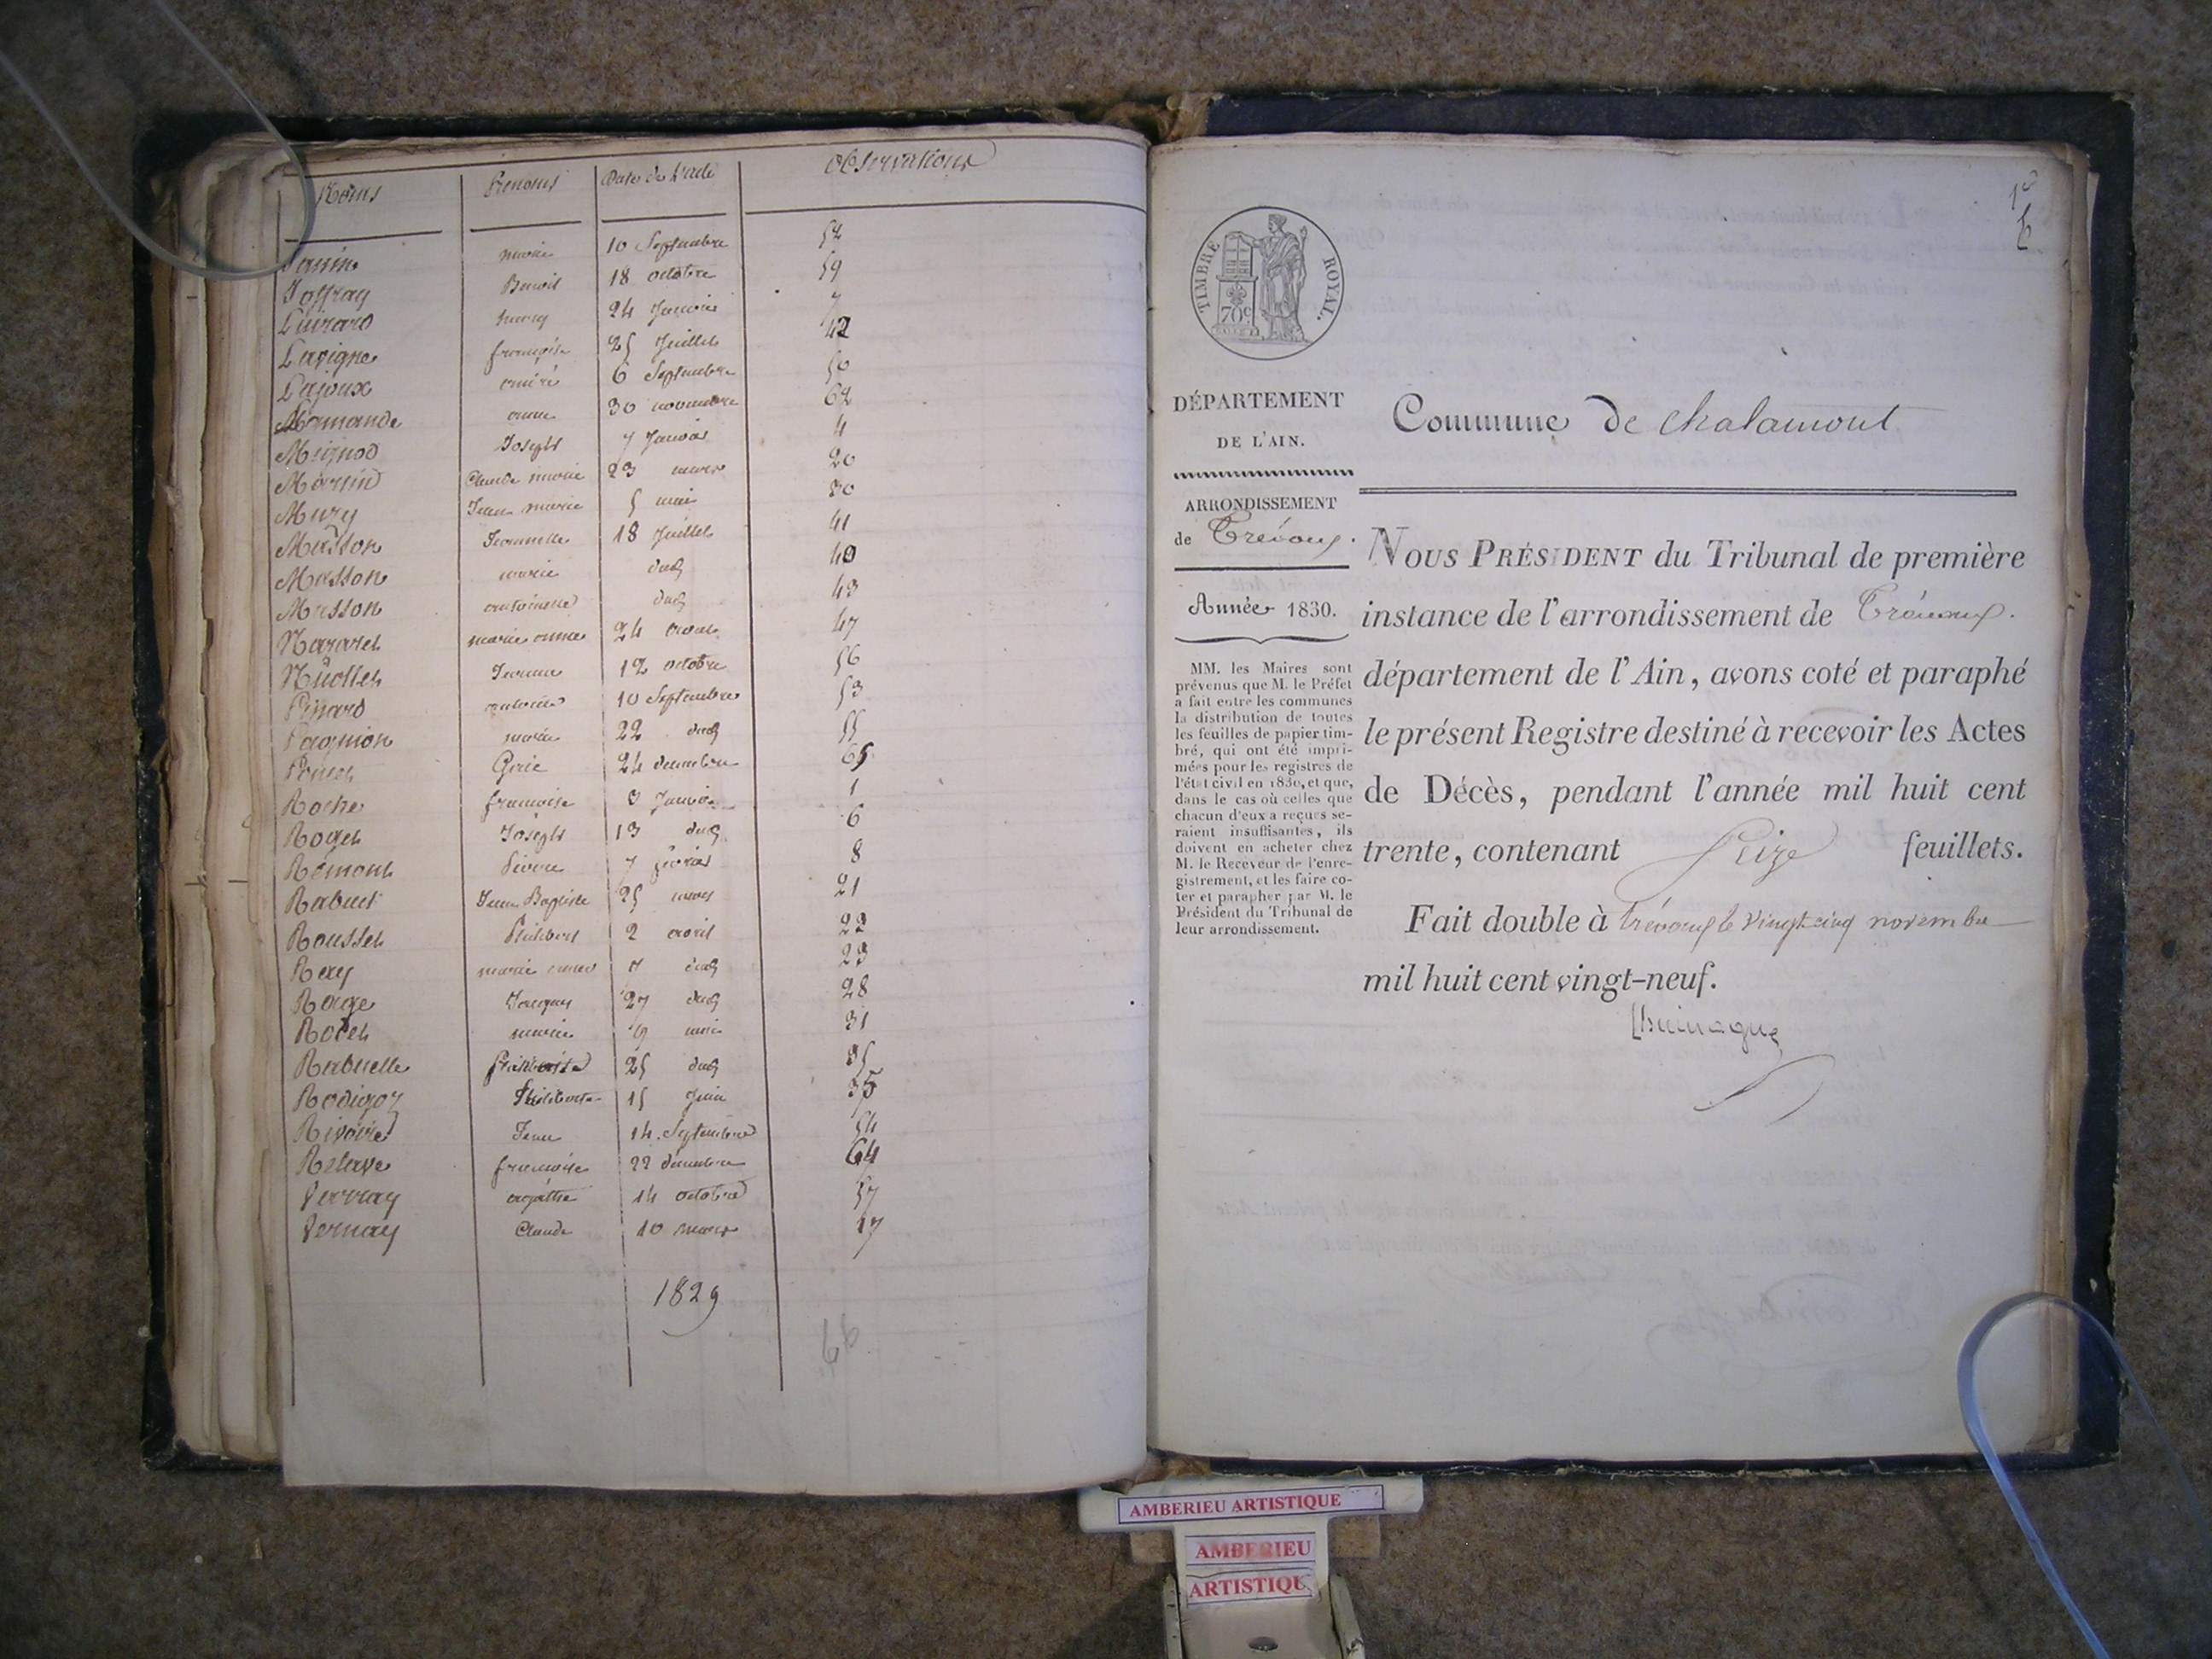 Noms Prenoms Date de l'acte Observations
Janin marie 10 Septembre 52
Joffray Benoit 18 octobre 59
24 Janvier 7
Lavigne françoise 25 Juillet 42
Lajoux 6 Septembre 50
anne 30 novembre 62
Mignod Joseph 7 Janvier 4
Morin Claude marie 23 mars 20
Mury Jean marie 5 mai 30
Musson Jeannette 18 Juillet 41
Musson marie dud 40
Musson antoinette dud 43
marie anne 24 47
12 octobre 56
Pinard 10 Septembre 53
Pagnion marie 22 dud 55
24 decembre 65
Roche francoise Janvier 1
Roget Joseph 13 dud 6
Rémont Pierre 7 fevrier 8
Rabuel Jean Baptiste 25 mars 21
Rousset Philibert 2 avril 22
Ray 7 dud 23
Rage Jacques 27 dud 28
marie 9 mai 31
Rabuelle 25 dud
Rodigoz Philiberte 15 Juin 35
Rivoire Jean 14 Septembre 54
Relave francoise 22 décembre 64
agathe 14 octobre 57
Vernay Claude 10 mars 17
1829
66
1er
TIMBRE ROYAL.
70c
DÉPARTEMENT
DE L'AIN.
Commune de chalamont
ARRONDISSEMENT
de Trévoux.
Année 1830.
MM. les Maires sont
prévenus que M. le Préfet
a fait entre les communes
la distribution de toutes
les feuilles de papier tim-
bré, qui ont été impri-
mées pour les registres de
l'état civil en 1830, et que,
dans le cas où celles que
chacun d'eux a reçues se-
raient insuffisantes, ils
doivent en acheter chez
M. le Receveur de l'enre-
gistrement, et les faire co-
ter et parapher par M. le
Président du Tribunal de
leur arrondissement.
NOUS PRÉSIDENT du Tribunal de première
instance de l'arrondissement de Trévoux.
département de l'Ain, avons coté et paraphé
le présent Registre destiné à recevoir les Actes
de Décès, pendant l'année mil huit cent
trente, contenant Seize feuillets.
Fait double à trévoux le vingt cinq novembre
mil huit cent vingt-neuf.
AMBERIEU ARTISTIQUE
AMBERIEU
ARTISTIQU